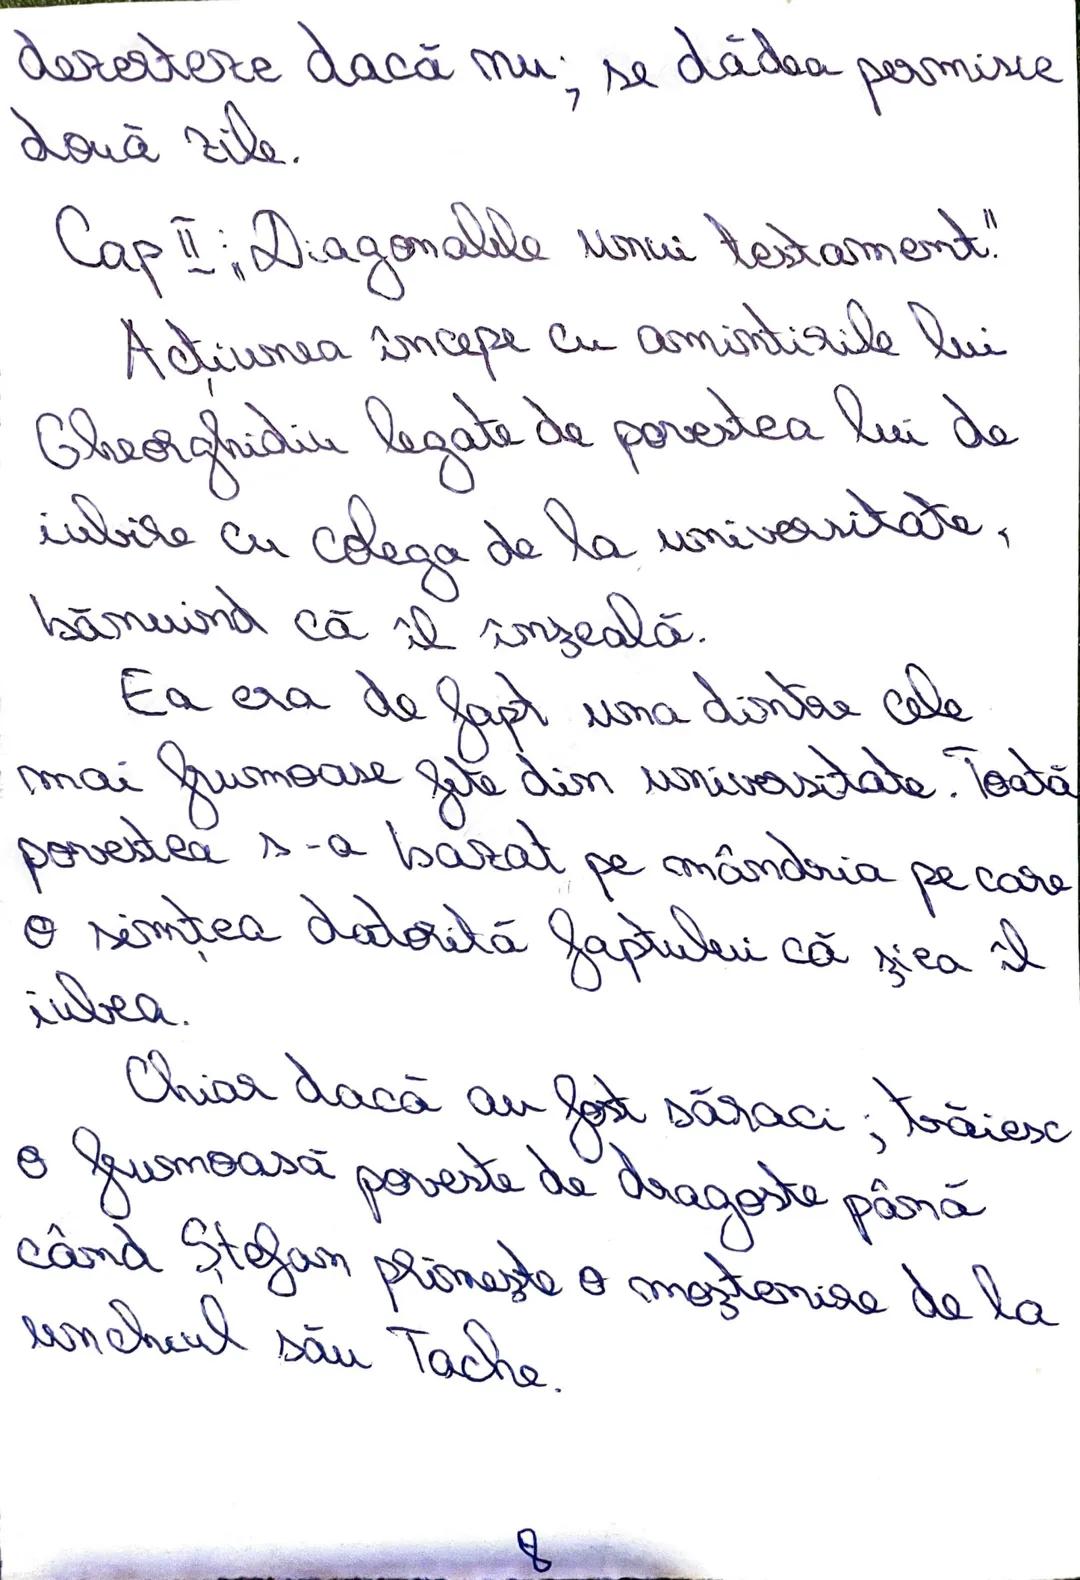 dezerteze dacă nu; se dădea permisie
două zile.
Cap II: „Diagonalele unui testament."
Acțiunea începe cu amintirile lui
Gheorghidiu legate de povestea lui de
iubire cu colega de la universitate,
bănuind că îl înșeală.
Ea era de fapt una dintre cele
mai frumoase fete din universitate. Toată
povestea s-a bazat pe mândria pe care
o simțea datorită faptului că și ea îl
iubea.
Chiar dacă au fost săraci; trăiesc
o frumoasă poveste de dragoste până
când Ștefan primește o moștenire de la
unchiul său Tache.
8